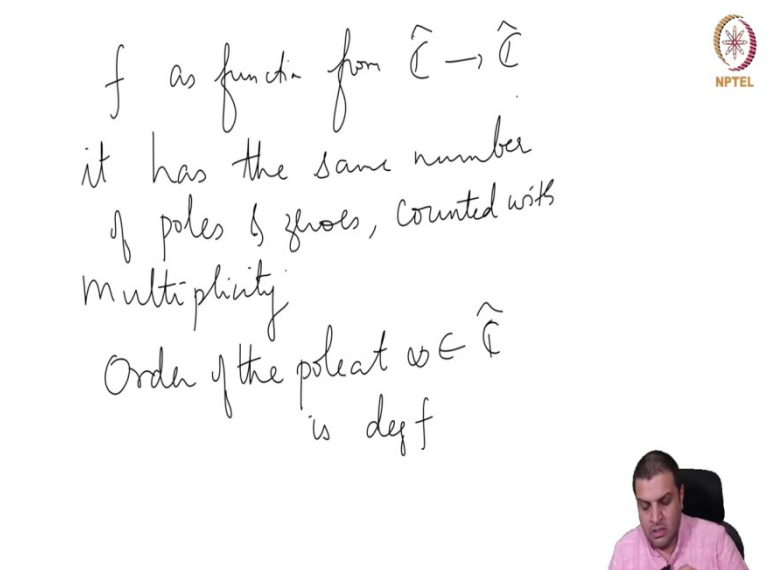 f as function from Ĉ → Ĉ
it has the same number
of poles & zeroes, counted with
multiplicity
Order of the pole at ∞ ∈ Ĉ
is deg f
NPTEL